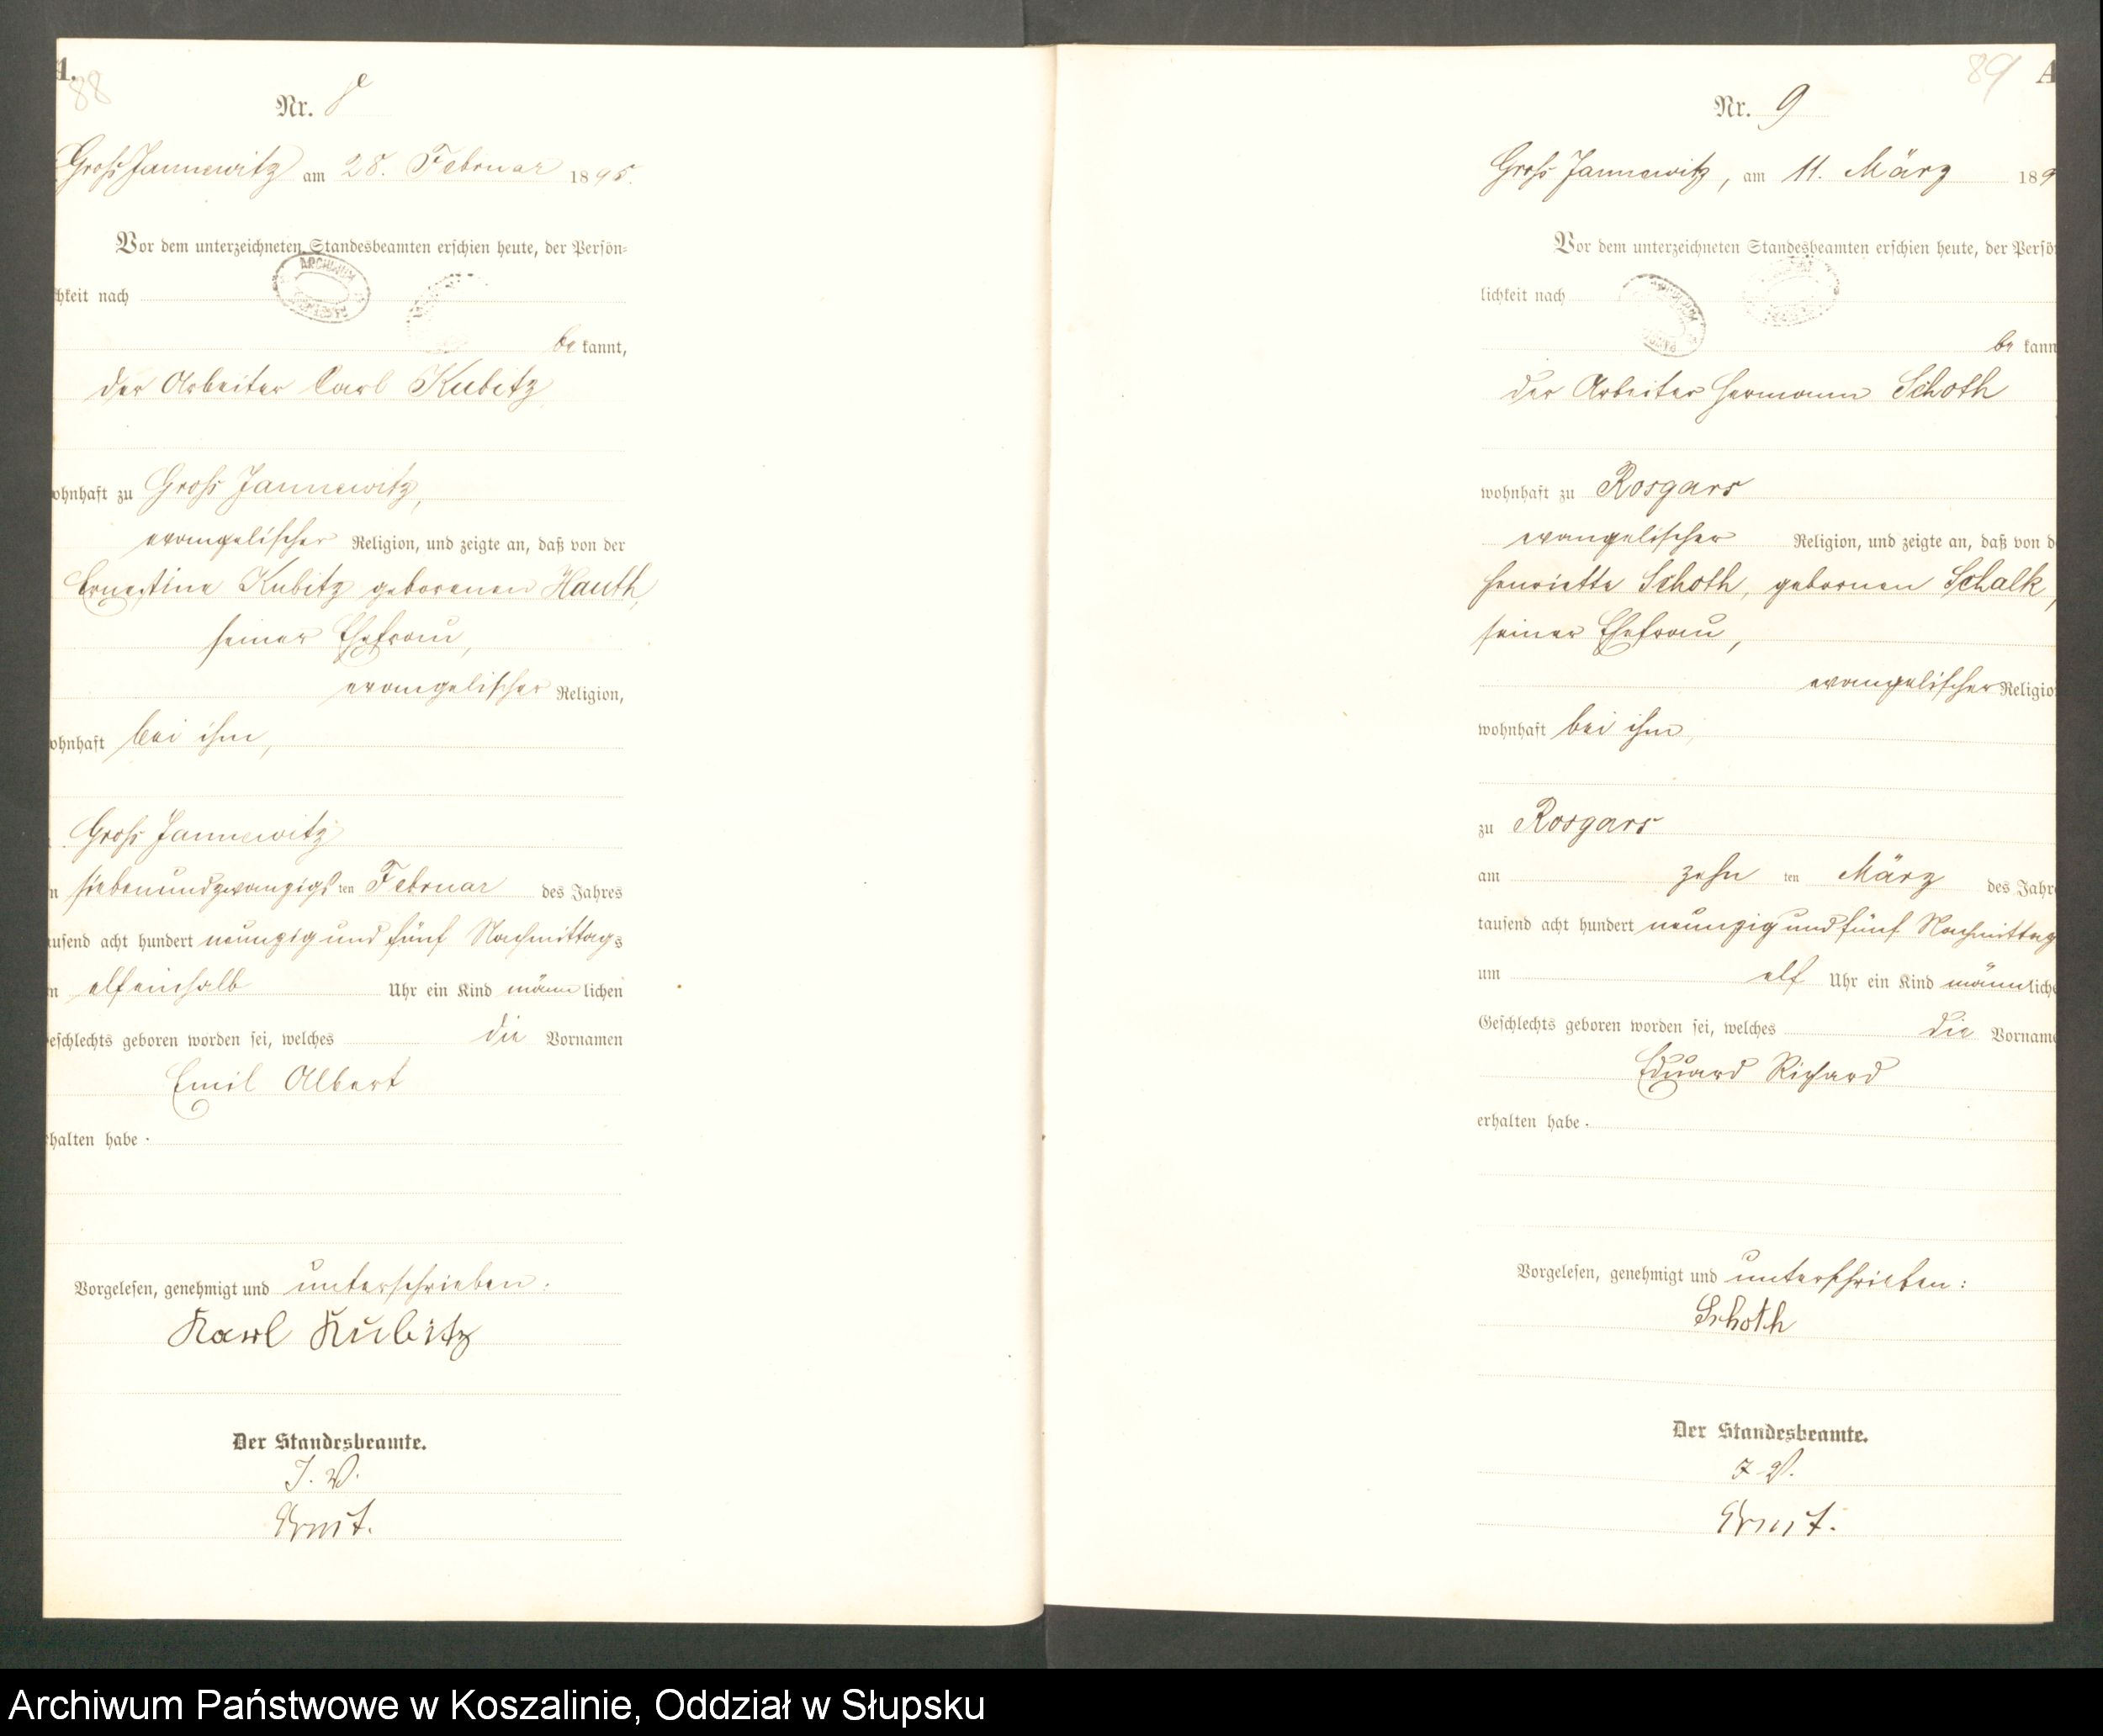 A.
88
Nr. 8
Gross Jannewitz am 28. Februar 1895.
Vor dem unterzeichneten Standesbeamten erschien heute, der Persön=
hkeit nach
be kannt,
der Arbeiter Carl Kubitz
ohnhaft zu Gross Jannewitz,
evangelischer Religion, und zeigte an, daß von der
Ernestine Kubitz geborenen Hauth,
seiner Ehefrau,
evangelischer Religion,
ohnhaft bei ihm,
Gross Jannewitz
siebenundzwanzigsten Februar des Jahres
usend acht hundert neunzig und fünf Nachmittags
elfeinhalb Uhr ein Kind männlichen
eschlechts geboren worden sei, welches die Vornamen
Emil Albert
halten habe.
Vorgelesen, genehmigt und unterschrieben.
Karl Kubitz
Der Standesbeamte.
I. V.
Ernst.
89
A
Nr. 9
Gross Jannewitz, am 11. März 189
Vor dem unterzeichneten Standesbeamten erschien heute, der Persö
lichkeit nach
be kann
der Arbeiter Hermann Schoth
wohnhaft zu Rosgars
evangelischer Religion, und zeigte an, daß von d
Henriette Schoth, gebornen Schalk,
seiner Ehefrau,
evangelischer Religio
wohnhaft bei ihm,
zu Rosgars
am zehn ten März des Jahr
tausend acht hundert neunzig und fünf Nachmittag
um elf Uhr ein Kind männliche
Geschlechts geboren worden sei, welches die Vorname
Eduard Richard
erhalten habe.
Vorgelesen, genehmigt und unterschrieben:
Schoth
Der Standesbeamte.
I. V.
Ernst.
Archiwum Państwowe w Koszalinie, Oddział w Słupsku